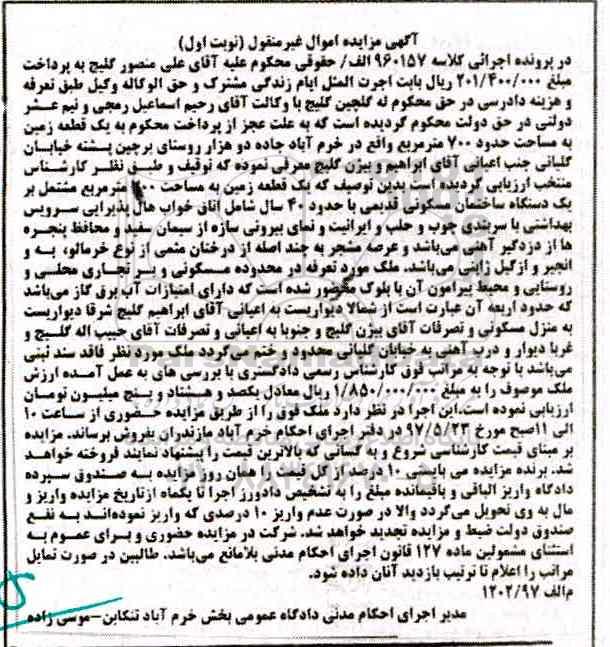 آگهی مزایده اموال غیرمنقول (نوبت اول)
در پرونده اجرائی کلاسه ۹۶۰۱۵۷الف/ حقوقی محکوم علیه آقای علی منصور گلیج به پرداخت
مبلغ ۲۰۱/۴۰۰/۰۰۰ ریال بابت اجرت المثل ایام زندگی مشترک و حق الوکاله وکیل طبق تعرفه
و هزینه دادرسی در حق محکوم له گلچین گلیج با وکالت آقای رحیم اسماعیل رمجی و نیم عشر
دولتی در حق دولت محکوم گردیده است که به علت عجز از پرداخت محکوم به یک قطعه زمین
به مساحت حدود ۷۰۰ مترمربع واقع در خرم آباد جاده دو هزار روستای برچین پشته خیابان
گلیانی جنب اعیانی آقای ابراهیم و بیژن گلیج معرفی نموده که توقیف و طبق نظر کارشناس
منتخب ارزیابی گردیده است بدین توصیف که یک قطعه زمین به مساحت مترمربع مشتمل بر
یک دستگاه ساختمان مسکونی قدیمی با حدود ۴۰ سال شامل اتاق خواب هال پذیرایی سرویس
بهداشتی با سربندی چوب و حلب و ایرانیت و نمای بیرونی سازه از سیمان سفید و محافظ پنجره
ها از دزدگیر آهنی می‌باشد و عرصه مشجر به چند اصله از درختان مثمی از نوع خرمالو، به و
انجیر و ازگیل ژاپنی می‌باشد. ملک مورد تعرفه در محدوده مسکونی و بر تجاری محلی و
روستایی و محیط پیرامون آن با بلوک محصور شده است که دارای امتیازات آب برق گاز می‌باشد
که حدود اربعه آن عبارت است از شمالا دیواریست به اعیانی آقای ابراهیم گلیج شرقا دیواریست
به منزل مسکونی و تصرفات آقای بیژن گلیج و جنوبا به اعیانی و تصرفات آقای حبیب اله گلیج و
غربا دیوار و درب آهنی به خیابان گلیانی محدود و ختم می‌گردد ملک مورد نظر فاقد سند ثبتی
می‌باشد با توجه به مراتب فوق کارشناس رسمی دادگستری با بررسی های به عمل آمده ارزش
ملک موصوف را به مبلغ ۱/۸۵۰/۰۰۰/۰۰۰ ریال معادل یکصد و هشتاد و پنج میلیون تومان
ارزیابی نموده است.این اجرا در نظر دارد ملک فوق را از طریق مزایده حضوری از ساعت ۱۰
الی ۱۱صبح مورخ ۹۷/۵/۲۳ در دفتر اجرای احکام خرم آباد مازندران بفروش برساند. مزایده
بر مبنای قیمت کارشناسی شروع و به کسانی که بالاترین قیمت را پیشنهاد نمایند فروخته خواهد
شد. برنده مزایده می بایستی ۱۰ درصد از کل قیمت را همان روز مزایده به صندوق سپرده
دادگاه واریز الباقی و باقیمانده مبلغ را به تشخیص دادورز اجرا تا یکماه ازتاریخ مزایده واریز و
مال به وی تحویل می‌گردد والا در صورت عدم واریز ۱۰ درصدی که واریز نموده‌اند به نفع
صندوق دولت ضبط و مزایده تجدید خواهد شد. شرکت در مزایده حضوری و برای عموم به
استثنای مشمولین ماده ۱۲۷ قانون اجرای احکام مدنی بلامانع می‌باشد. طالبین در صورت تمایل
مراتب را اعلام تا ترتیب بازدید آنان داده شود.
م‌الف ۱۲۰۲/۹۷
مدیر اجرای احکام مدنی دادگاه عمومی بخش خرم آباد تنکابن-موسی زاده